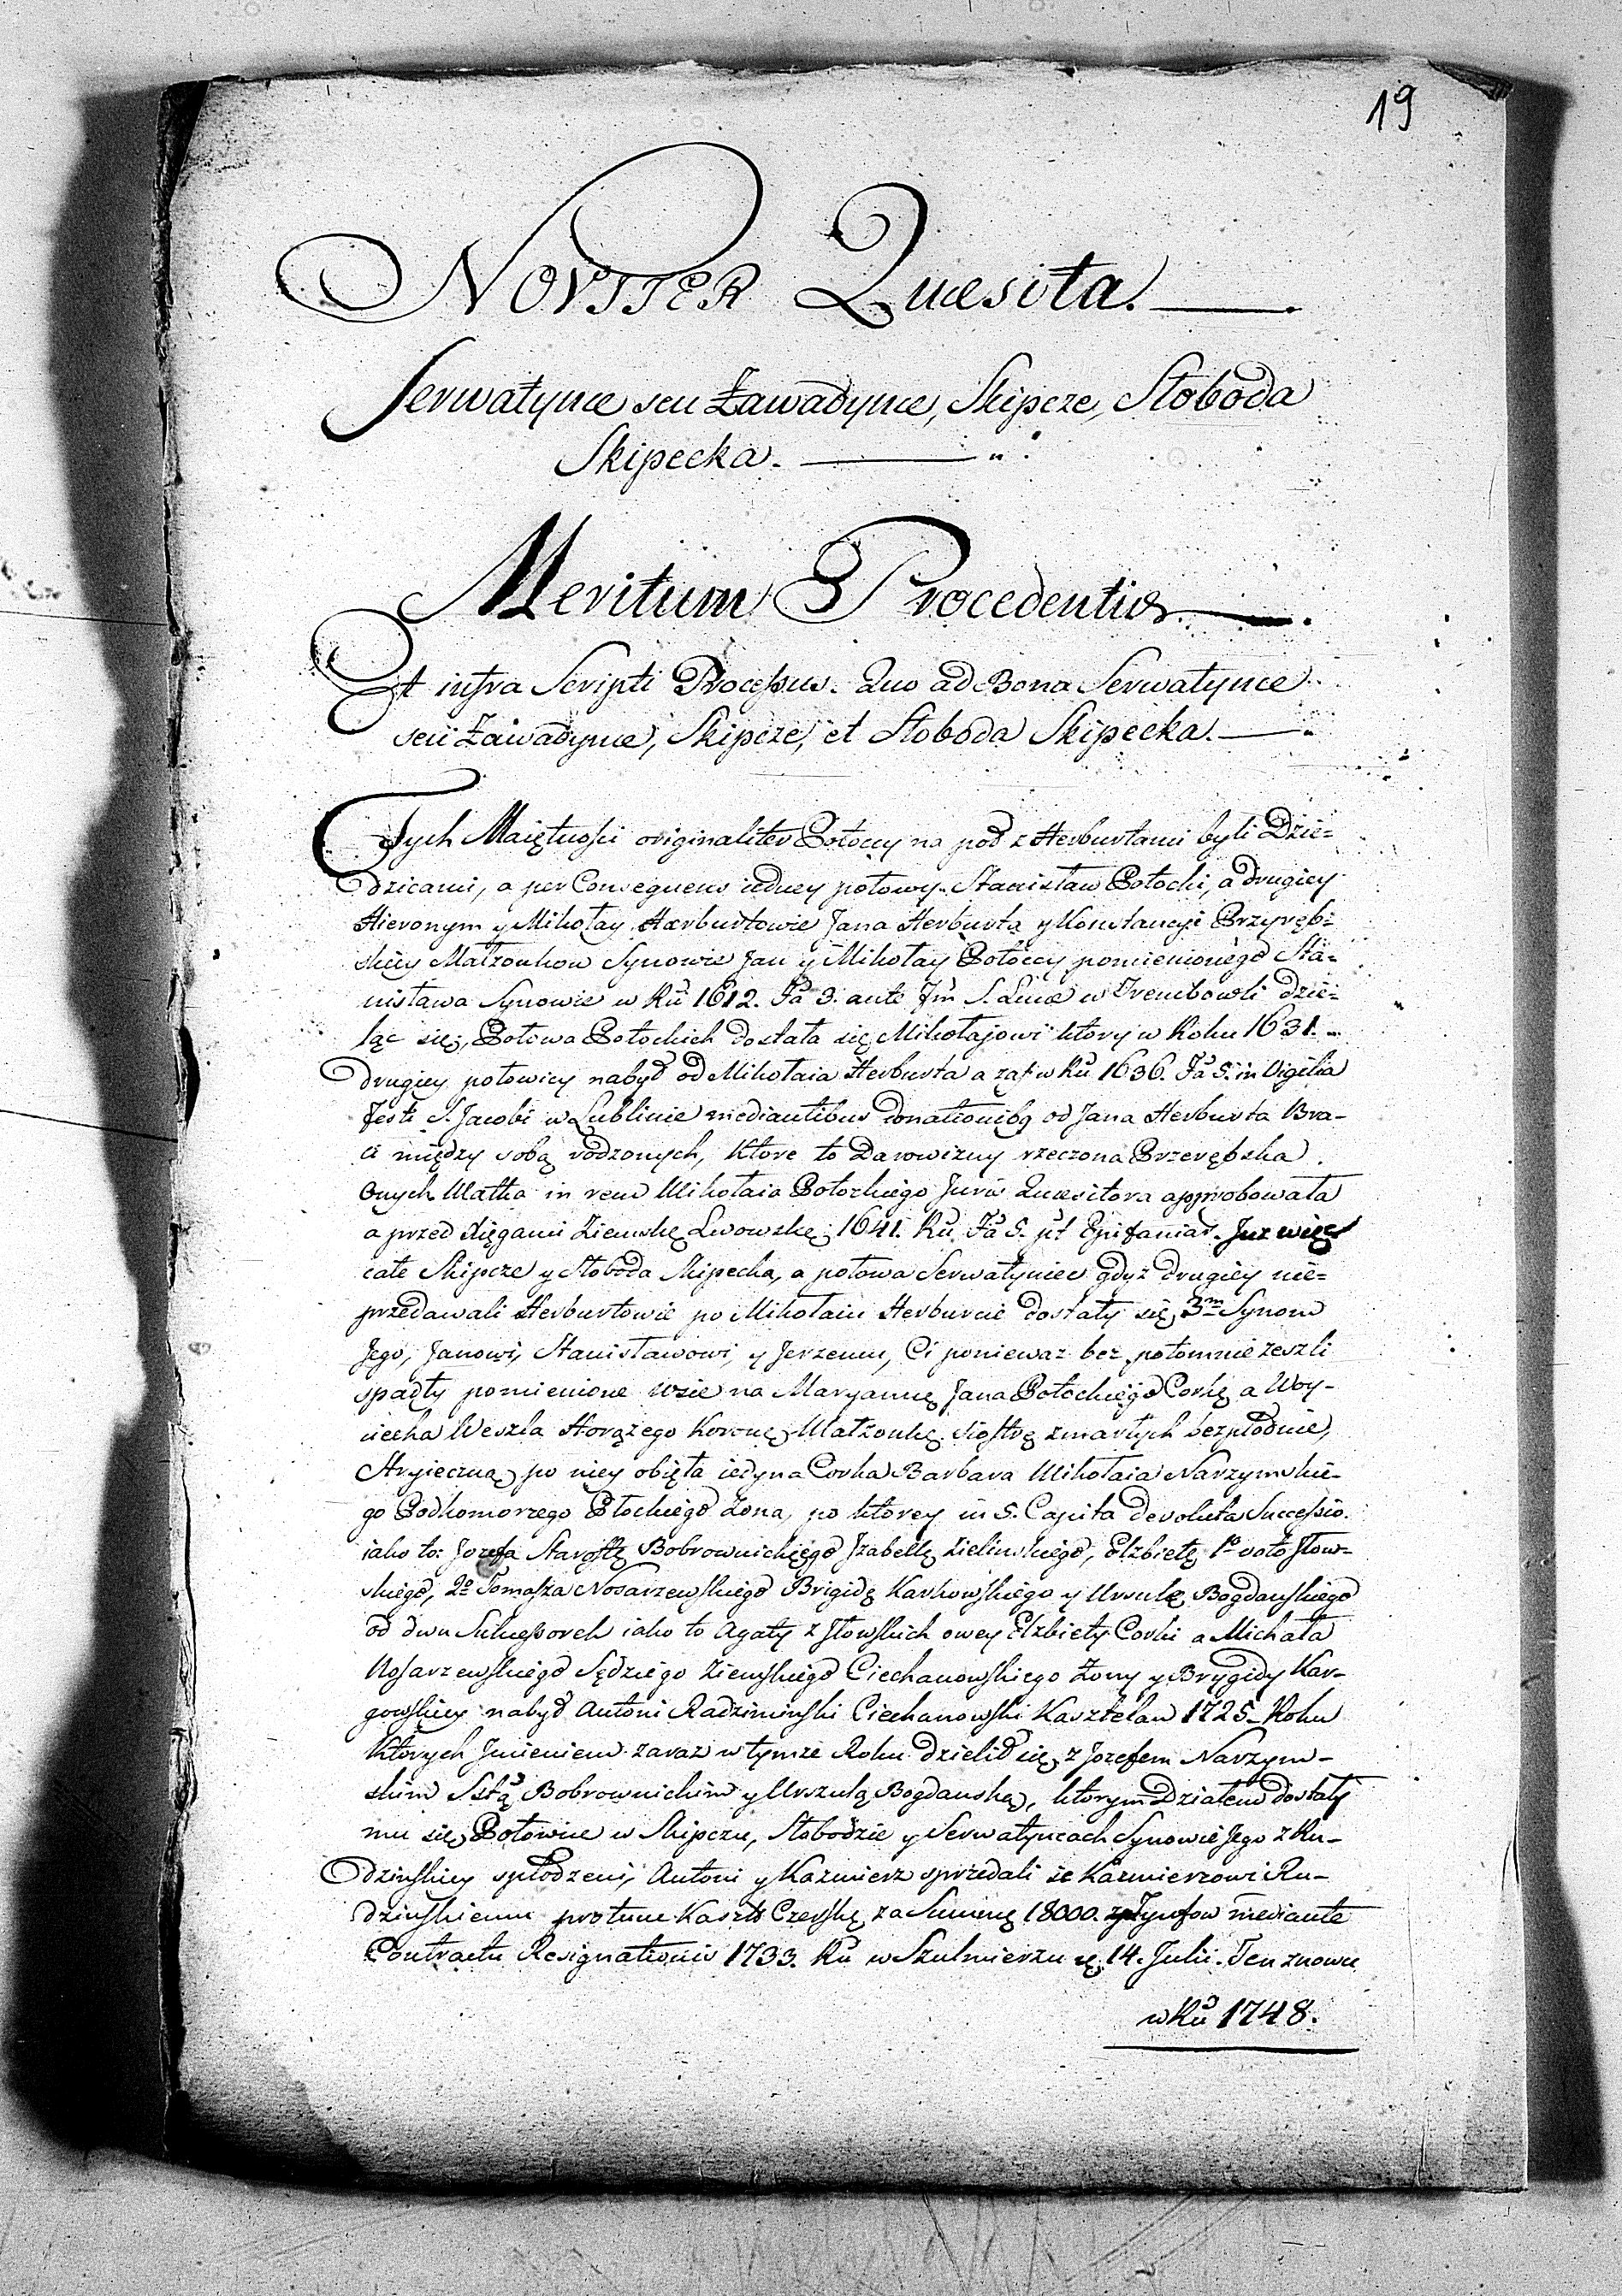 19
NOVITER Quæsita.
Serwatynce seu Zawadynce, Skipcze, Słoboda
Skipecka.
Meritum Procedentiæ
Et infra Scripti Processus. Quo ad Bona Serwatynce
seu Zawadynce, Skipcze, et Słoboda Skipecka.
Tych Maiętności originaliter Potoccy na poł z Herburtami byli Dzie=
dzicami, a per Consequens iedney połowy Stanisław Potocki, a drugiey
Hieronym y Mikołay Herburtowie Jana Herburta y Konstancyi Przyręb=
skiey Małzonkow Synowie Jan y Mikołay Potoccy pomienionego Sta=
nisława Synowie w Ru 1612. Fa 3. ante Fm S. Lucæ w Trembowli dzie=
ląc się, Połowa Potockich dostała się Mikołajowi ktory w Roku 1631.
drugiey połowicy nabył od Mikołaia Herburta a zaś w Ru 1636. Fa 5. in Vigilia
Festi S. Jacobi w Lublinie mediantibus donationibg od Jana Herburta Bra-
ci między sobą rodzonych, ktore to Darowizny rzeczona Przerębska
Onych Matka in rem Mikołaia Potockiego Juris Quæsitora approbowała
a przed Xięgami Ziemskę Lwowskę 1641. Ru Fa 5. pt Epifaniar. Juz więc
całe Skipcze y Słoboda Skipecka, a połowa Serwatyniec gdyż drugiey nie=
przedawali Herburtowie po Mikołaiu Herburcie dostały się 3m Synom
Jego, Janowi, Stanisławowi, y Jerzemu, Ci poniewaz bez potomnie zeszli
spadły pomienione wsie na Maryannę Jana Potockiego Corkę a Woy-
ciecha Weszla Horążego Koronę Małzonkę siostrę zmarłych bezpłodnie,
Stryieczną po niey obięta iedyna Corka Barbara Mikołaia Narzymskie-
go Podkomorzego Płockiego Zona, po ktorey in 5. Capita devoluta Successio.
iako to: Jozefa Starostę Bobrownickiego Izabellę Zielinskiego, Elzbietę 1o voto Słow-
skiego, 2o Tomasza Nosarzewskiego Brigidę Karkowskiego y Ursulę Bogdanskiego
od dwu Sukcessorek iako to Agaty z Słowskich owey Elzbiety Corki a Michała
Nosarzewskiego Sędziego Ziemskiego Ciechanowskiego Zony y Brygidy Kar-
gowskiey nabył Antoni Radziminski Ciechanowski Kasztelan 1725. Roku
Których Jmieniem zaraz w tymze Roku dzielił się z Jozefem Narzym-
skim Sstą Bobrownickim y Urszulą Bogdanską, ktorym Działem dostały
mu się Połowice w Skipczu, Słobodzie y Serwatyncach Synowie Jego z Ru-
dzinskiey spłodzeni, Antoni y Kazmierz sprzedali ie Kazmierzowi Ru-
dzinskiemu protunc Kaszt Czerskę za Summę 18000. Tynfow mediante
Contractu Resignationis 1733. Ru w Szulmierzu 14. Julii. Ten znowu
w Ru 1748.